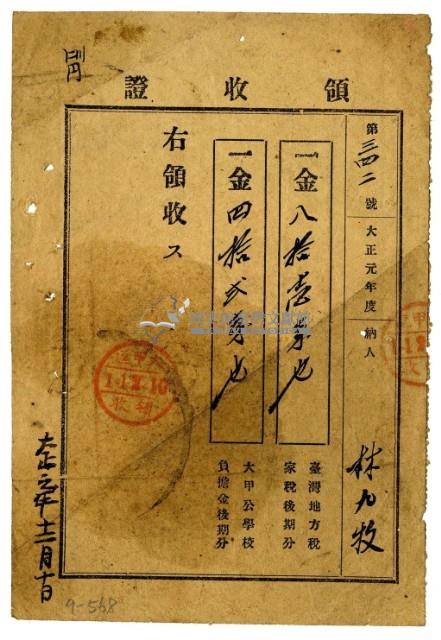 領收證
第三四二號 大正元年度 納人 林九牧
一金八拾壹錢也
臺灣地方稅
家稅後期分
一金四拾弍錢也
大甲公學校
負擔金後期分
右領收ス
1.12.10
領收
大正元年十二月十日
9-568